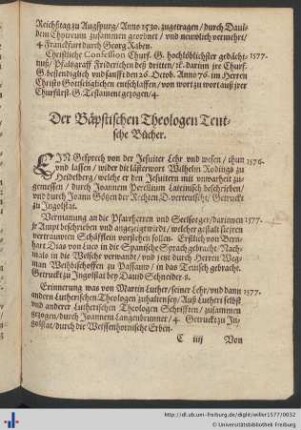 Reichßtag zu Augspurg / Anno 1530. zugetragen / durch Davidem Chytreum zusamen geordnet / vnd newlich vermehrt /
4. Franckfurt durch Georg Raben.
Christliche Confession Churf. G. hochlöblichster gedächtnuß / Pfaltzgraff Friderichen deß dritten / 1577.
G. bestendiglich vnd sanfft den 26. Octob. Anno 76. im Herren
Christo Gottseliglichen entschlaffen / von wort zu wort auß jrer
Churfürstl. G. Testament gezogen / 4.
Der Bäpstischen Theologen Teut-
sche Bücher.
EIN Gesprech von der Jesuiter Lehr vnd wesen / thun 1576.
vnd lassen / wider die lästerwort Wilhelm Rodings zu
Heidelberg / welche er den Jesuitern mit vnwarheit zu-
gemessen / durch Joannem Perellium Lateinisch beschrieben /
vnd durch Joann Götzen der Rechten D. verteutscht / Getruckt
zu Ingolstat.
Vermanung an die Pfarrherren vnd Seelsorger / darinnen 1577.
je Ampt beschrieben vnd angezeigt wirdt / welcher gestalt sie jren
vertrauweten Schäfflein vorstehen sollen.
in die Spanische Sprach gebracht / Nach-
mals in die Welsche verwandt / vnd jetzt durch Herren
Weihbischoffen zu Passauw / in das Teutsch gebracht.
Getruckt zu Ingolstat bey David Schneider. 8.
Erinnerung was von Martin Luther / seiner Lehr / vnd dann 1577.
andern Lutherischen Theologen zuhalten sey / Auß Luthers selbst
vnd anderer Lutherischen Theologen Schrifften / zusammen
gezogen / durch Joannem Langenbrunner / 4. Getruckt zu In-
golstat / durch die Weissenhornische Erben.
C iiij Von
http://dl.ub.uni-freiburg.de/diglit/willer1577/0032
© Universitätsbibliothek Freiburg